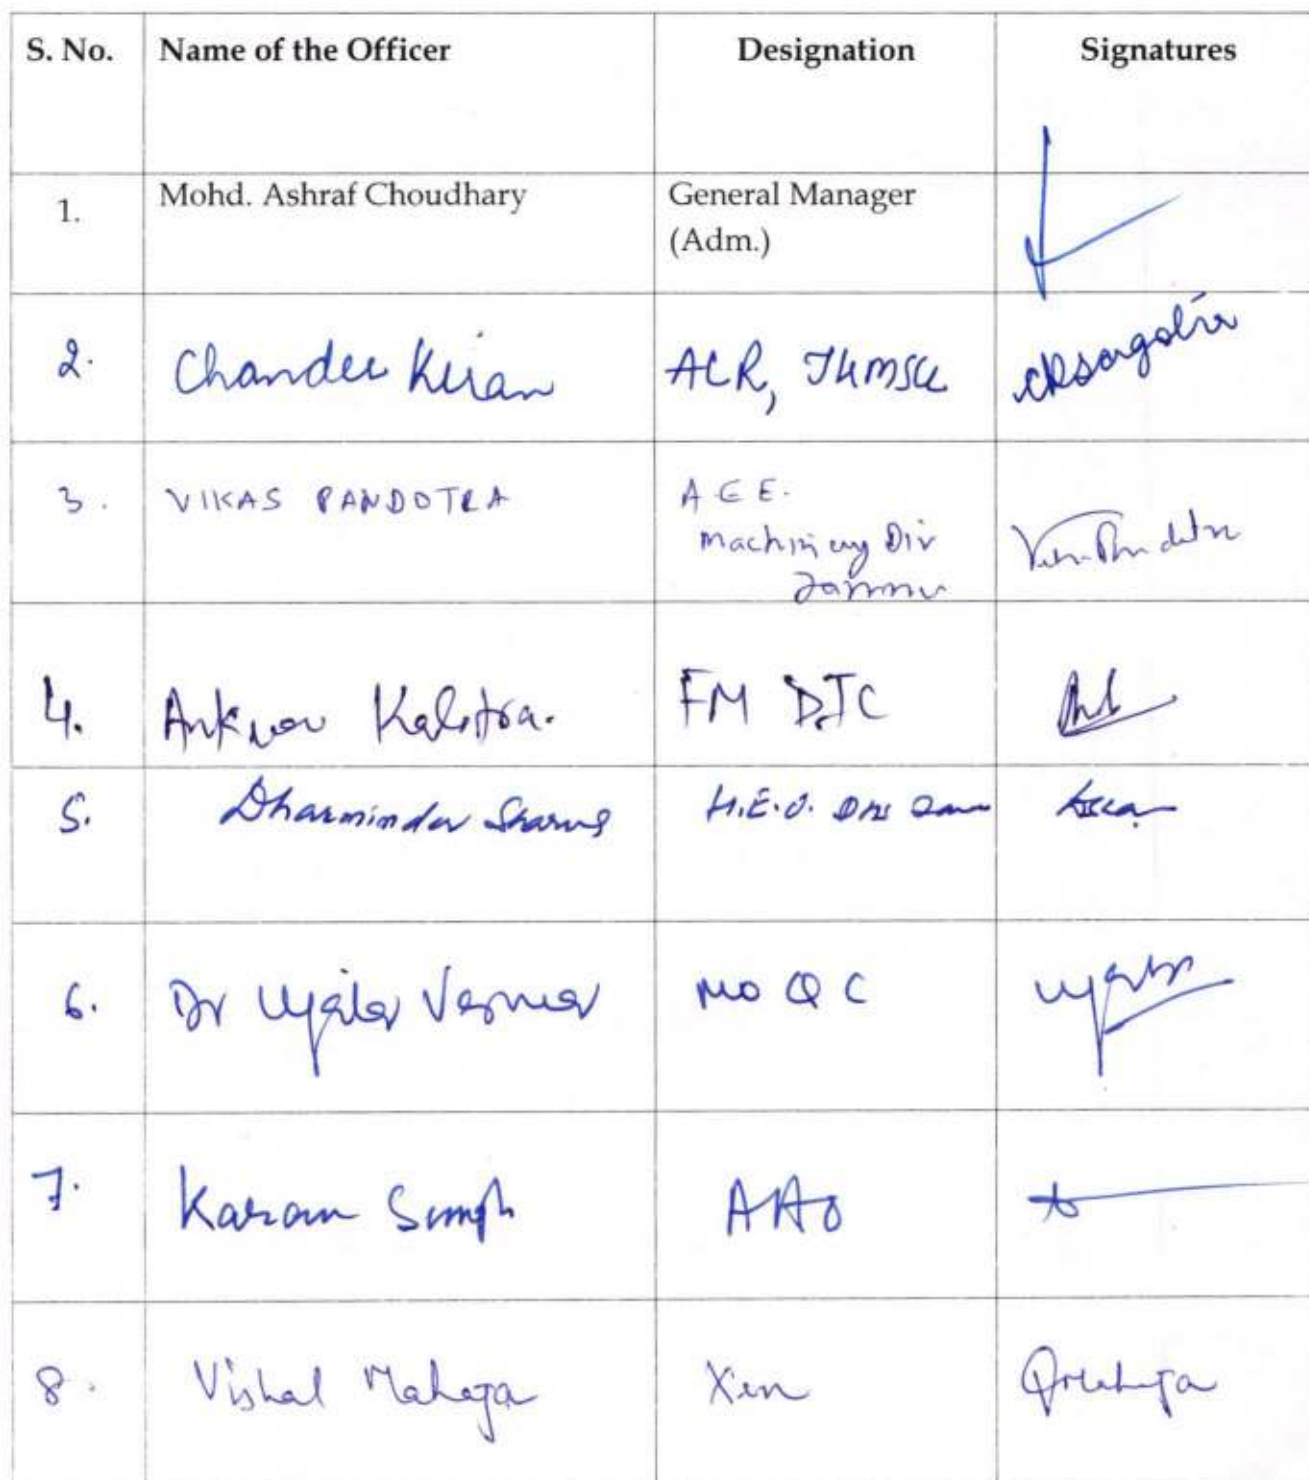 S. No. Name of the Officer Designation Signatures
1. Mohd. Ashraf Choudhary General Manager
(Adm.)
2. Chander Kiran ACR,
3. VIKAS PANDOTRA AEE.
Machinery Div
Jammu
4. Ankur Kalotra. FM DIC
5. Dharminder Sharma H.E.O.
6. Dr Ujala Verma MO QC
7. Karan Singh AAO
8. Vishal Mahajan Xen